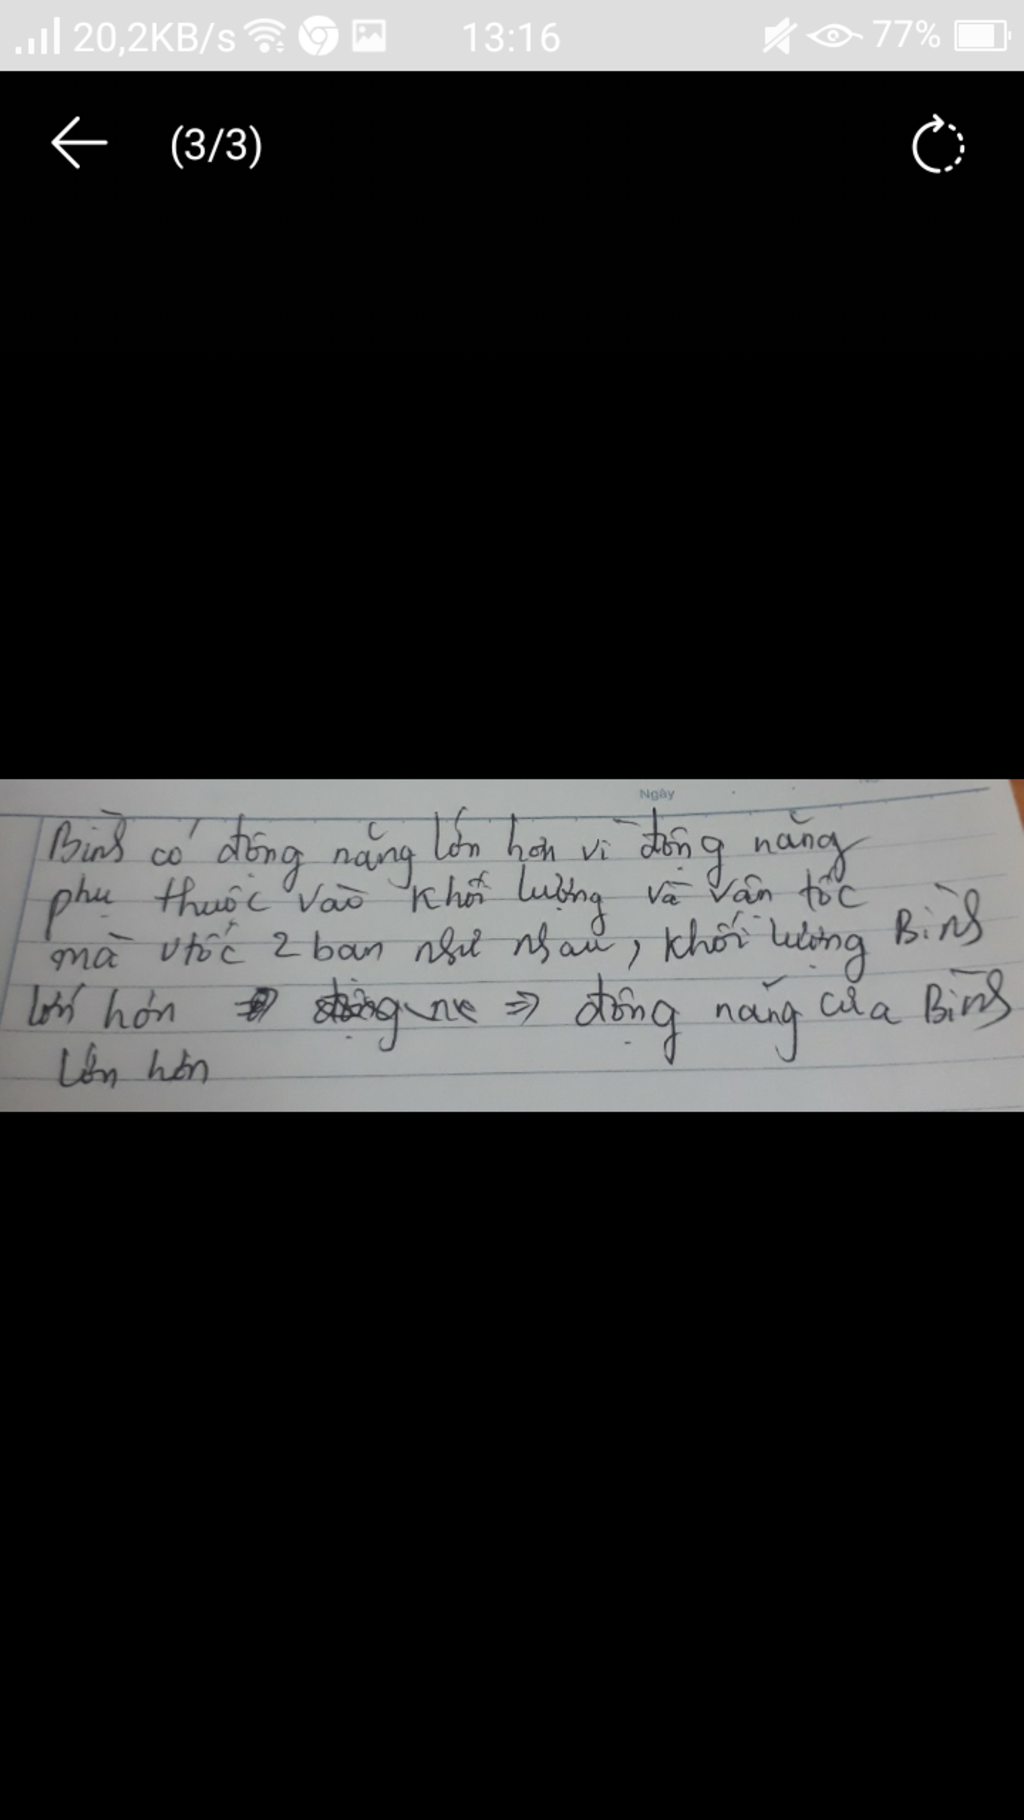 20,2KB/s 13:16 77%
(3/3)
Ngày
Bình có động năng lớn hơn vì động năng
phụ thuộc vào khối lượng và vận tốc
mà vtốc 2 bạn như nhau, khối lượng Bình
lớn hơn => động năng của Bình
lớn hơn